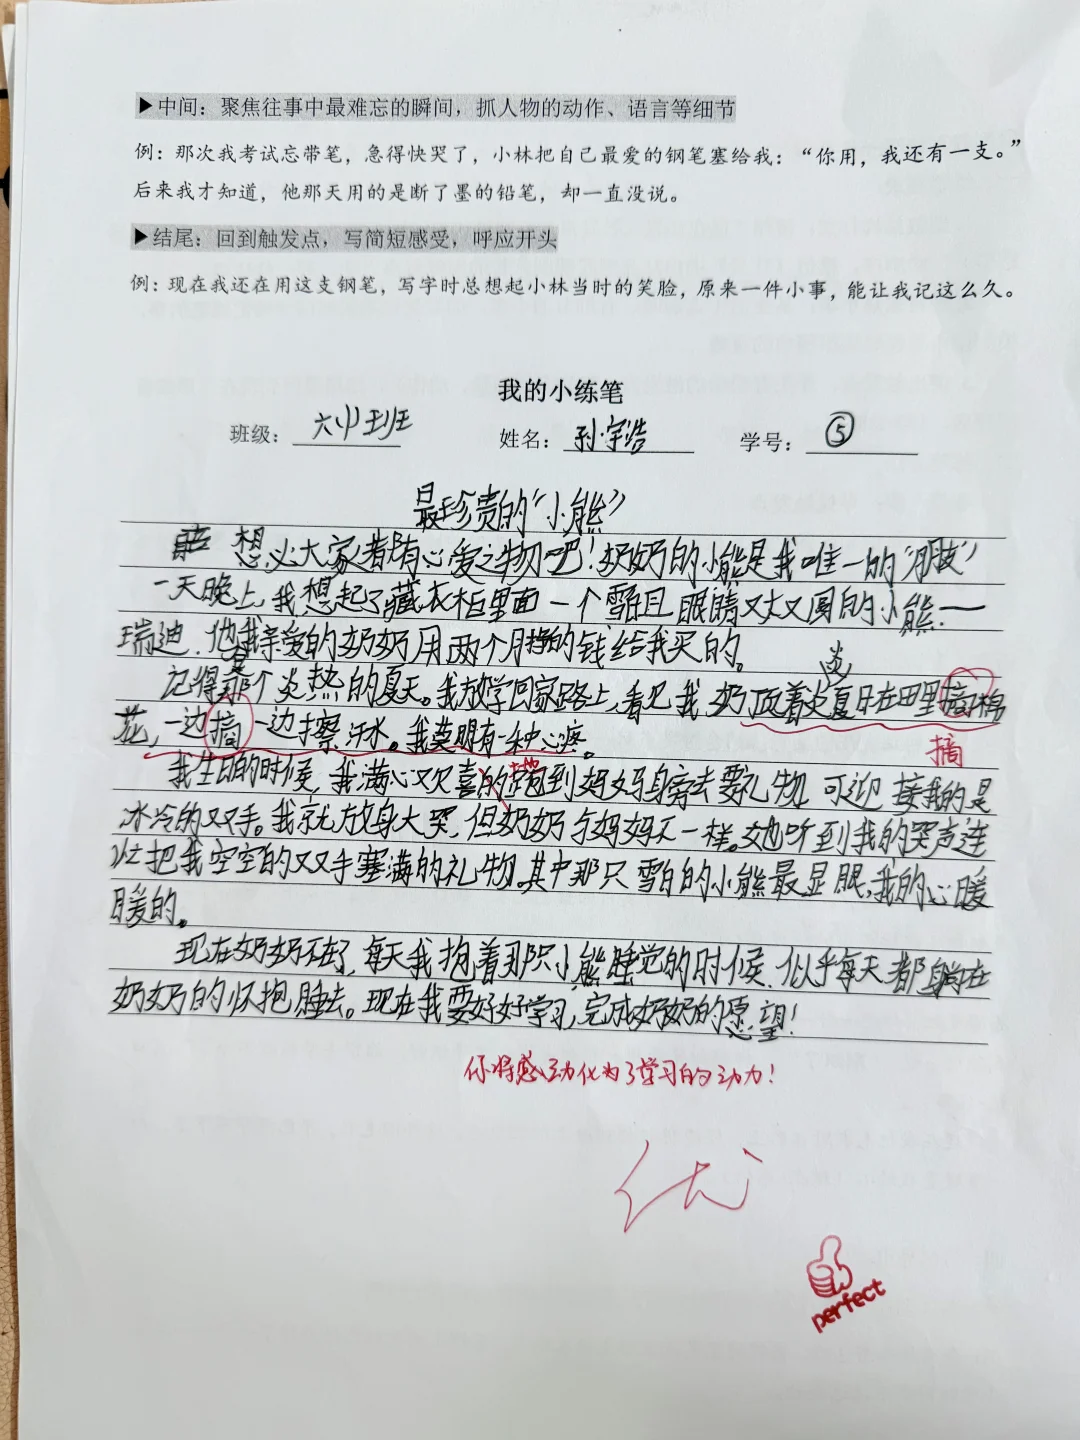 ▶中间：聚焦往事中最难忘的瞬间，抓人物的动作、语言等细节
例：那次我考试忘带笔，急得快哭了，小林把自己最爱的钢笔塞给我：“你用，我还有一支。”
后来我才知道，他那天用的是断了墨的铅笔，却一直没说。
▶结尾：回到触发点，写简短感受，呼应开头
例：现在我还在用这支钢笔，写字时总想起小林当时的笑脸，原来一件小事，能让我记这么久。
我的小练笔
班级：六中班 姓名：孙宇浩 学号：⑤
最珍贵的“小熊”
想必大家都有心爱之物吧！奶奶的小熊是我唯一的“朋友”
一天晚上，我想起了藏衣柜里面一个雪白且眼睛又大又圆的小熊——
瑞迪．他我亲爱的奶奶用两个月挣的钱给我买的。
记得那个炎热的夏天。我放学回家路上，看见我奶顶着炎夏日在田里摘棉
花，一边摘一边擦汗水。我莫明有一种心疼。
摘
我生日的时候，我满心欢喜的跑到妈妈身旁去要礼物，可迎接我的是
地
冰冷的双手。我就放身大哭，但奶奶与妈妈不一样。她听到我的哭声连
忙把我空空的双手塞满的礼物。其中那只雪白的小熊最显眼，我的心暖
暖的。
现在奶奶不在了，每天我抱着那只小熊睡觉的时候．似乎每天都躺在
奶奶的怀抱睡去。现在我要好好学习，完成奶奶的愿望！
你将感动化为了学习的动力！
优
perfect